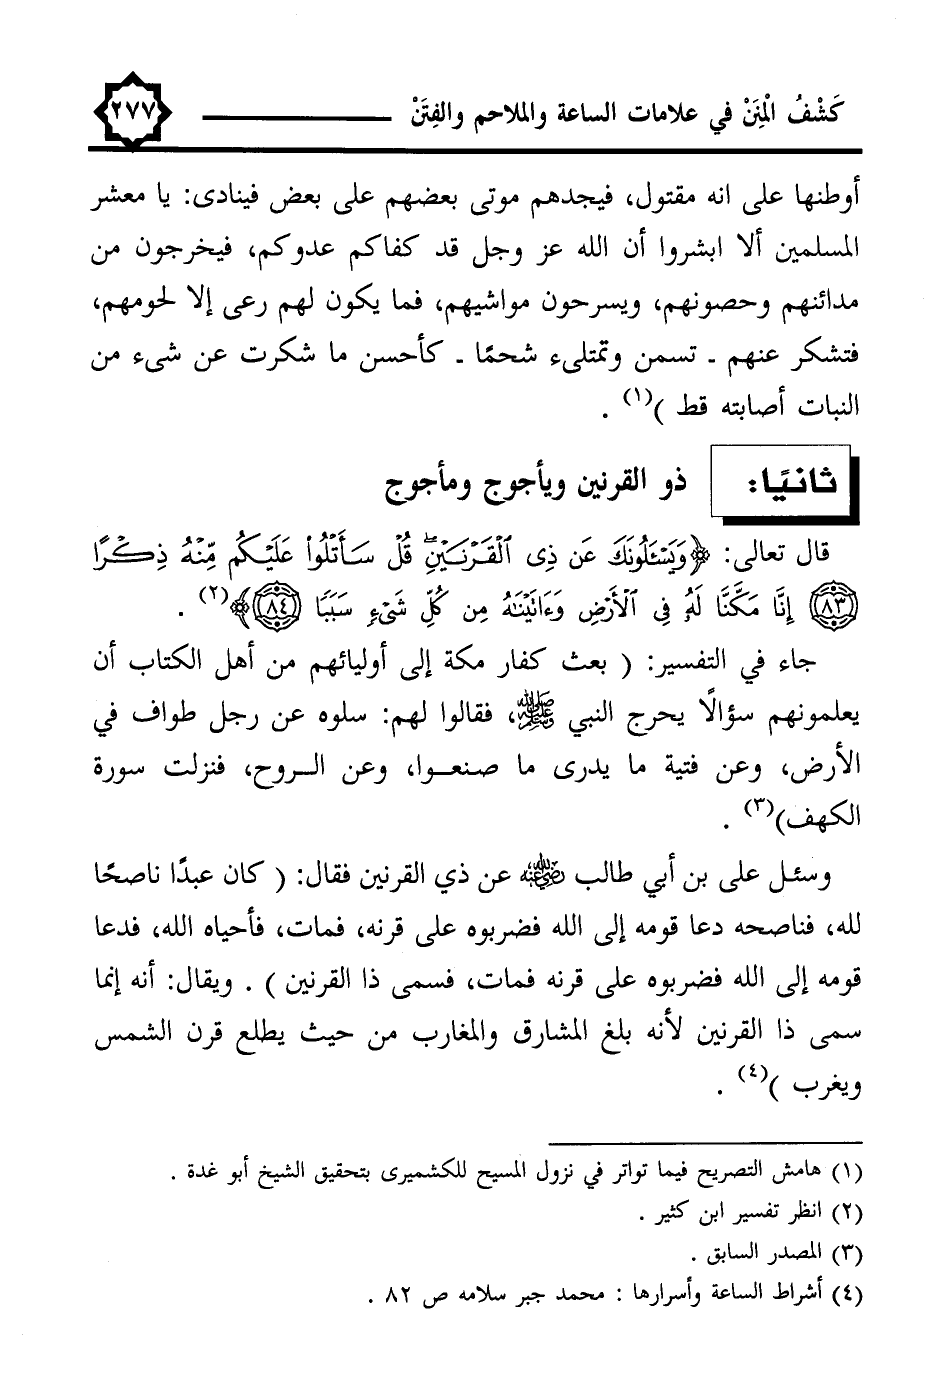 كَشْفُ الْمِنَنْ في علامات الساعة والملاحم والفِتَنْ ٢٧٧
أوطنها على انه مقتول، فيجدهم موتى بعضهم على بعض فينادى: يا معشر
المسلمين ألا ابشروا أن الله عز وجل قد كفاكم عدوكم، فيخرجون من
مدائنهم وحصونهم، ويسرحون مواشيهم، فما يكون لهم رعى إلا لحومهم،
فتشكر عنهم ـ تسمن وتمتلىء شحمًا ـ كأحسن ما شكرت عن شىء من
النبات أصابته قط )(١) .
ثانيًا: ذو القرنين ويأجوج ومأجوج
قال تعالى: ﴿وَيَسْـَٔلُونَكَ عَن ذِى ٱلْقَرْنَيْنِ ۖ قُلْ سَأَتْلُوا۟ عَلَيْكُم مِّنْهُ ذِكْرًا
٨٣ إِنَّا مَكَّنَّا لَهُۥ فِى ٱلْأَرْضِ وَءَاتَيْنَٰهُ مِن كُلِّ شَىْءٍ سَبَبًا ٨٤﴾(٢) .
جاء في التفسير: ( بعث كفار مكة إلى أوليائهم من أهل الكتاب أن
يعلمونهم سؤالًا يحرج النبي ﷺ، فقالوا لهم: سلوه عن رجل طواف في
الأرض، وعن فتية ما يدرى ما صنعـوا، وعن الـروح، فنزلت سورة
الكهف)(٣) .
وسئل على بن أبي طالب رضي الله عنه عن ذي القرنين فقال: ( كان عبدًا ناصحًا
لله، فناصحه دعا قومه إلى الله فضربوه على قرنه، فمات، فأحياه الله، فدعا
قومه إلى الله فضربوه على قرنه فمات، فسمى ذا القرنين ) . ويقال: أنه إنما
سمى ذا القرنين لأنه بلغ المشارق والمغارب من حيث يطلع قرن الشمس
ويغرب )(٤) .
(١) هامش التصريح فيما تواتر في نزول المسيح للكشميرى بتحقيق الشيخ أبو غدة .
(٢) انظر تفسير ابن كثير .
(٣) المصدر السابق .
(٤) أشراط الساعة وأسرارها : محمد جبر سلامه ص ٨٢ .